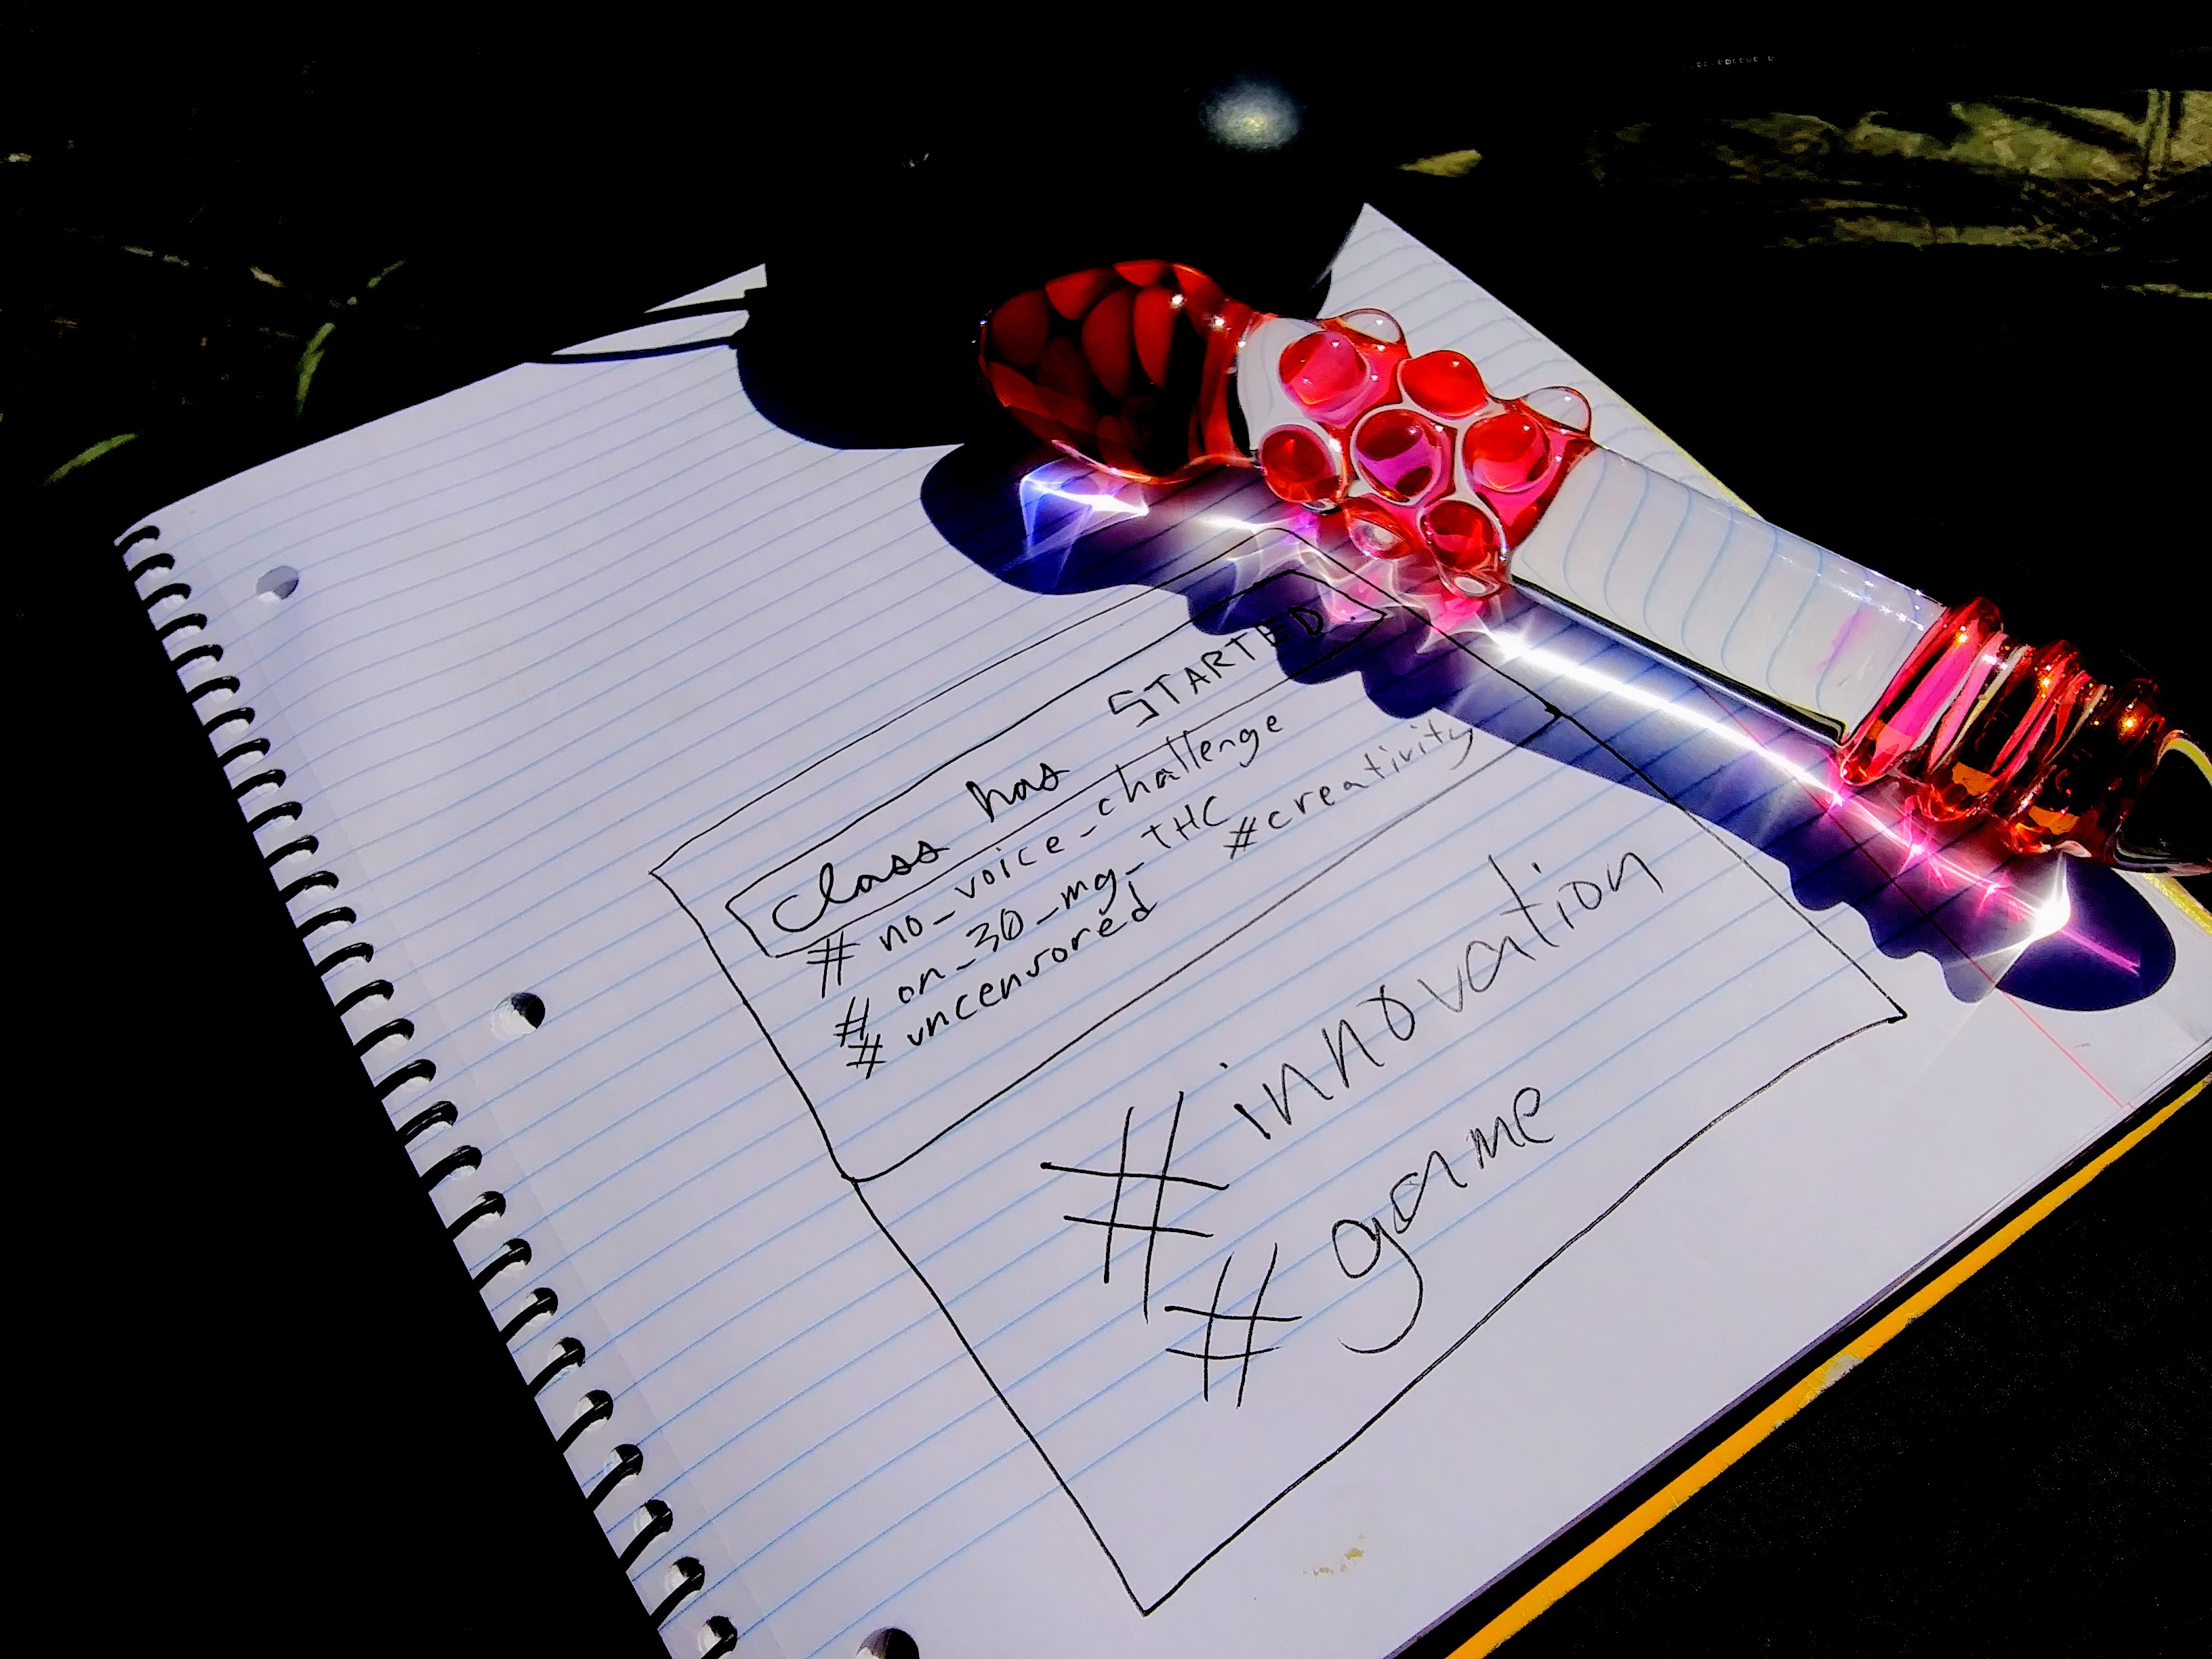 Class has STARTED
# no_voice_challenge
# on_30_mg_THC
# uncensored #creativity
# innovation
# game